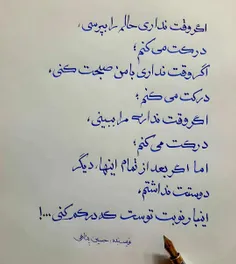 اگر وقت نداری حالم را بپرسی،
درکت می‌کنم؛
اگر وقت نداری با من صحبت کنی،
درکت می‌کنم؛
اگر وقت نداری مرا ببینی،
درکت می‌کنم؛
اما اگر بعد از تمام اینها، دیگر
دوستت نداشتم،
اینبار نوبت توست که درکم کنی...!
نویسنده: حسین پناهی